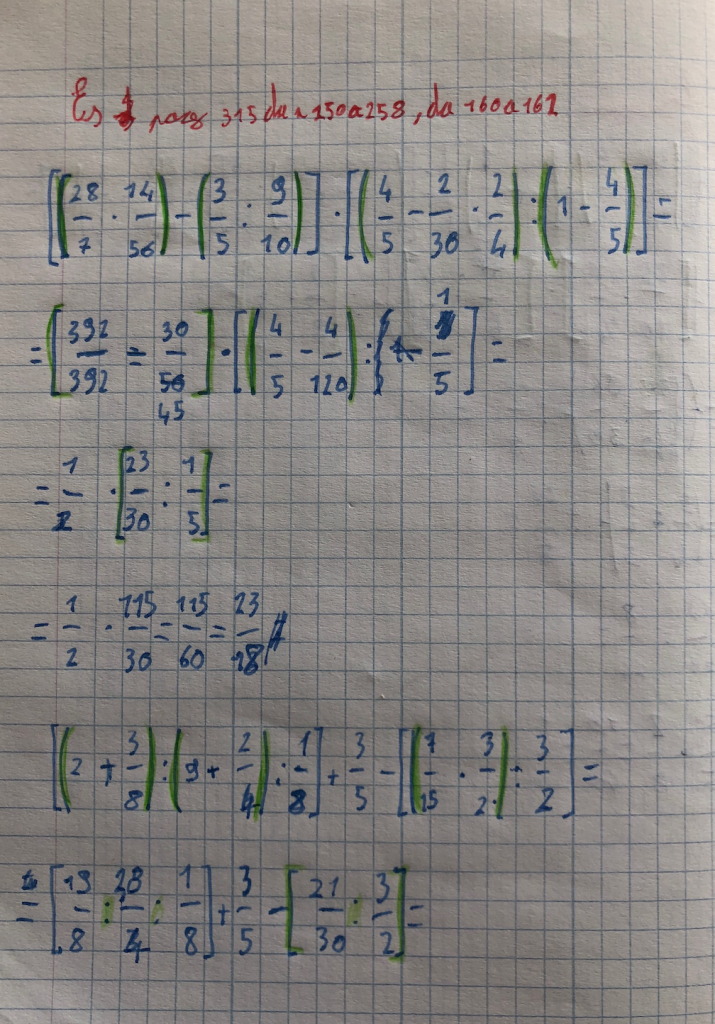 Es 1 pag 315 da n 250 a 258, da 160 a 162
[(28/7 · 14/56) - (3/5 : 9/10)] · [(4/5 - 2/30 · 2/4) : (1 - 4/5)] =
= [392/392 - 30/45] · [(4/5 - 4/120) : 1/5] =
= 1/2 · [23/30 : 1/5] =
= 1/2 · 115/30 = 115/60 = 23/18
[(2 + 3/8) : (9 + 2/4) : 1/8] + 3/5 - [(7/15 · 3/2) : 3/2] =
= [19/8 : 28/4 : 1/8] + 3/5 - [21/30 : 3/2] =